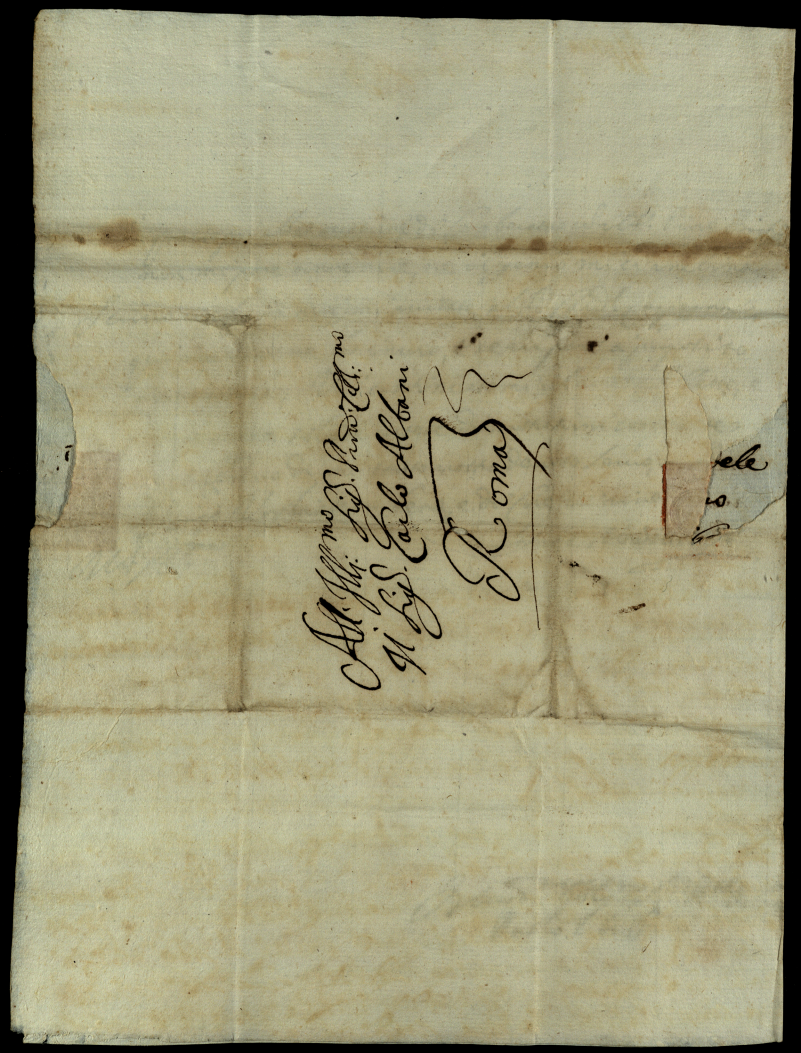 All: Ill:mo Sig:r Pron: Col:mo
Il Sig:r Carlo Albani
Roma
ele